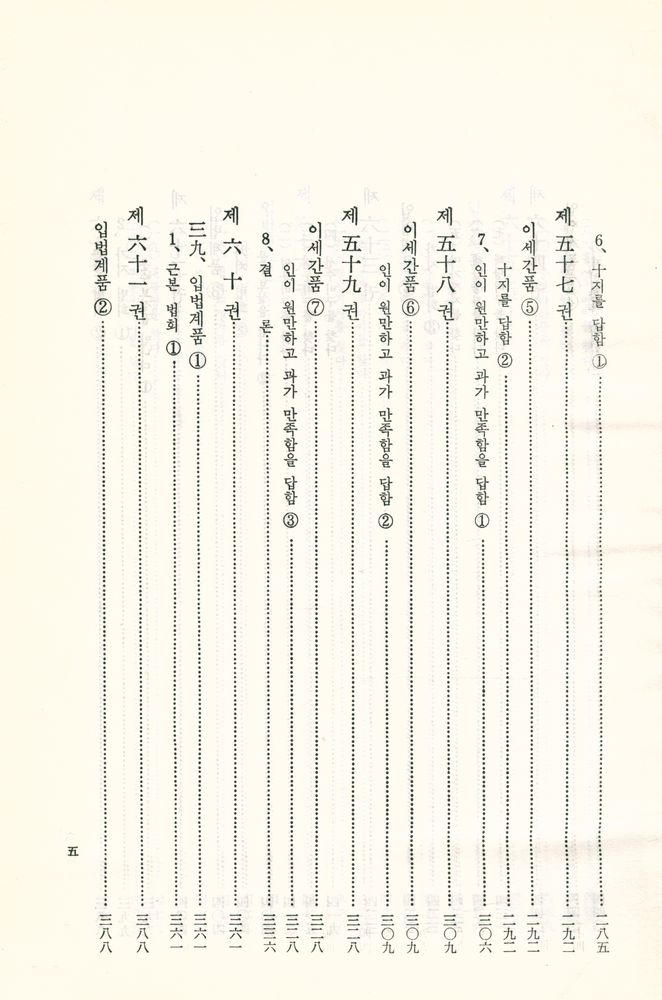 6、十지를 답함 ① 二八五
제 五十七 권 二九二
이세간품 ⑤ 二九二
十지를 답함 ② 二九二
7、인이 원만하고 과가 만족함을 답함 ① 三〇六
제 五十八 권 三〇九
이세간품 ⑥ 三〇九
인이 원만하고 과가 만족함을 답함 ② 三〇九
제 五十九 권 三二八
이세간품 ⑦ 三二八
인이 원만하고 과가 만족함을 답함 ③ 三二八
8、결 론 三三六
제 六 十 권 三六一
三九、입법계품 ① 三六一
1、근본 법회 ① 三六一
제 六十一 권 三八八
입법계품 ② 三八八
五